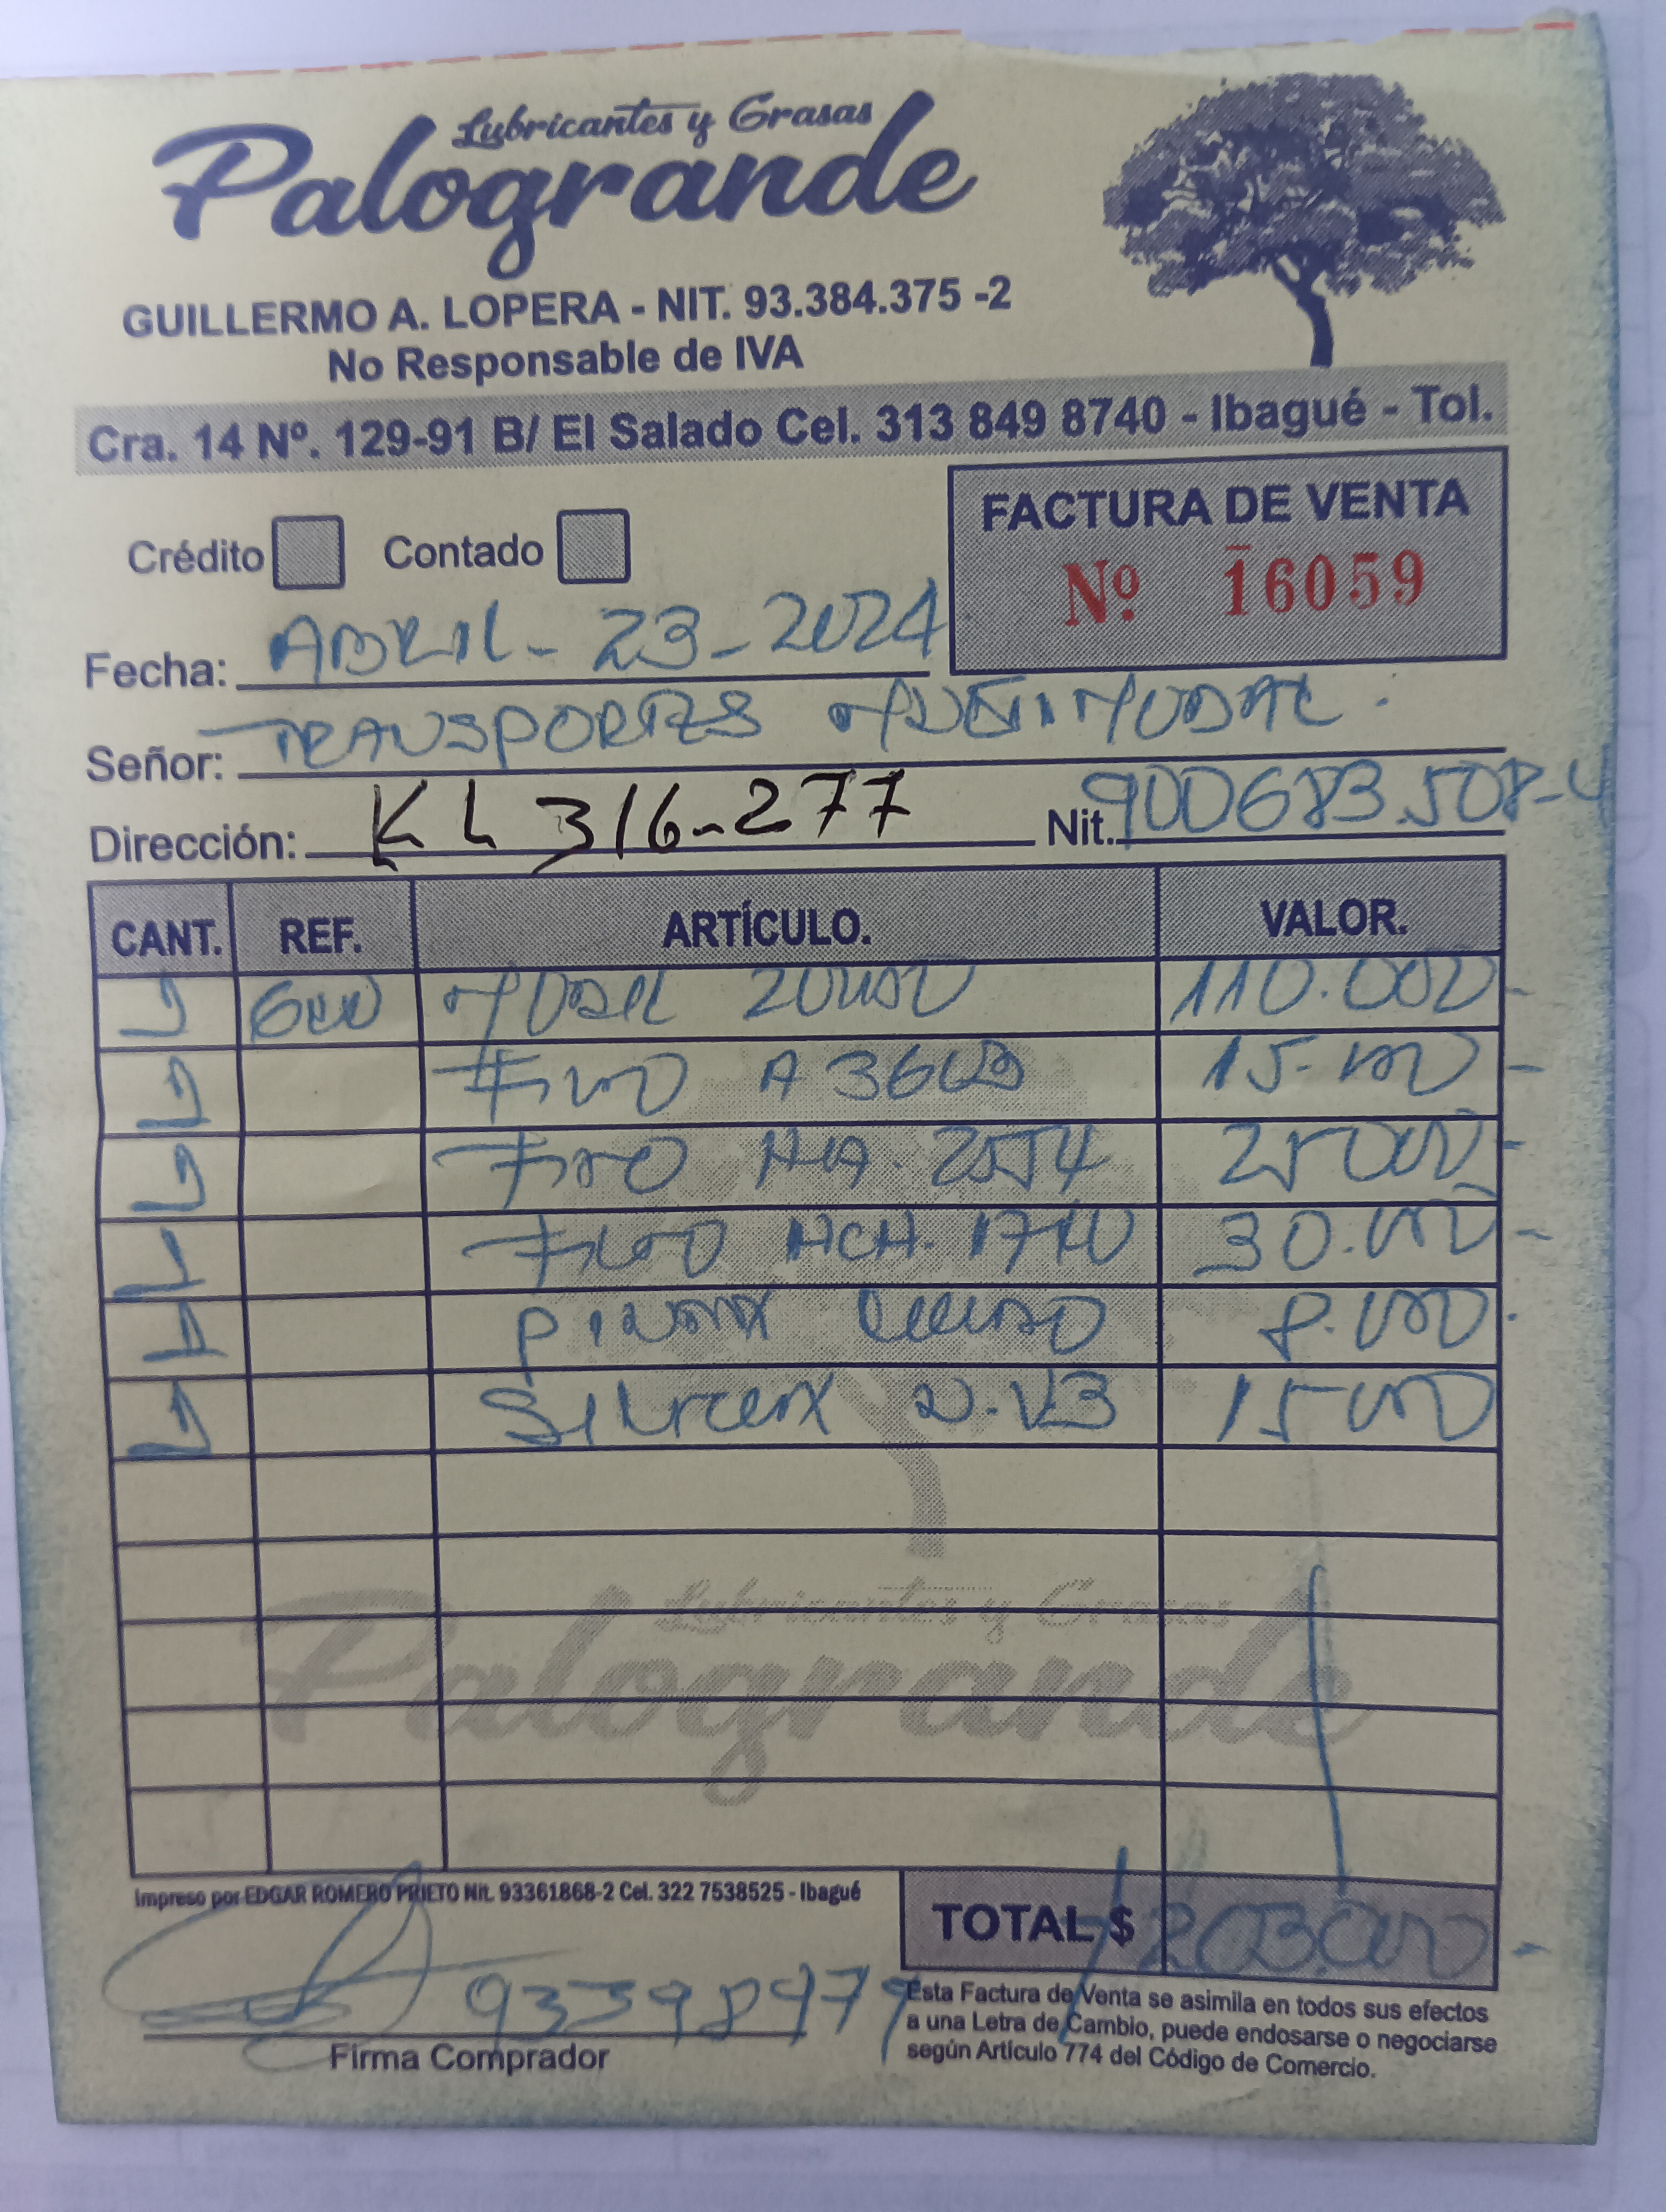 Lubricantes y Grasas
Palogrande
GUILLERMO A. LOPERA - NIT. 93.384.375 -2
No Responsable de IVA
Cra. 14 Nº. 129-91 B/ El Salado Cel. 313 849 8740 - Ibagué - Tol.
Crédito Contado
FACTURA DE VENTA
Nº. 16059
Fecha: ABRIL - 23 - 2024
Señor: TRANSPORTES MULTIMODAL.
Dirección: KL 316-277 Nit. 900683.508-4
CANT. REF. ARTÍCULO. VALOR.
1 MOBIL 20W50 110.000-
1 Filtro A 360 15.000-
1 Filtro 2554 25000-
1 Filtro 30.000-
1 8.000.
1 15000
Lubricantes y Grasas
Palogrande
Impreso por EDGAR ROMERO PRIETO Nit. 93361868-2 Cel. 322 7538525 - Ibagué
TOTAL $ 203.000-
93398979
Firma Comprador
Esta Factura de Venta se asimila en todos sus efectos
a una Letra de Cambio, puede endosarse o negociarse
según Artículo 774 del Código de Comercio.